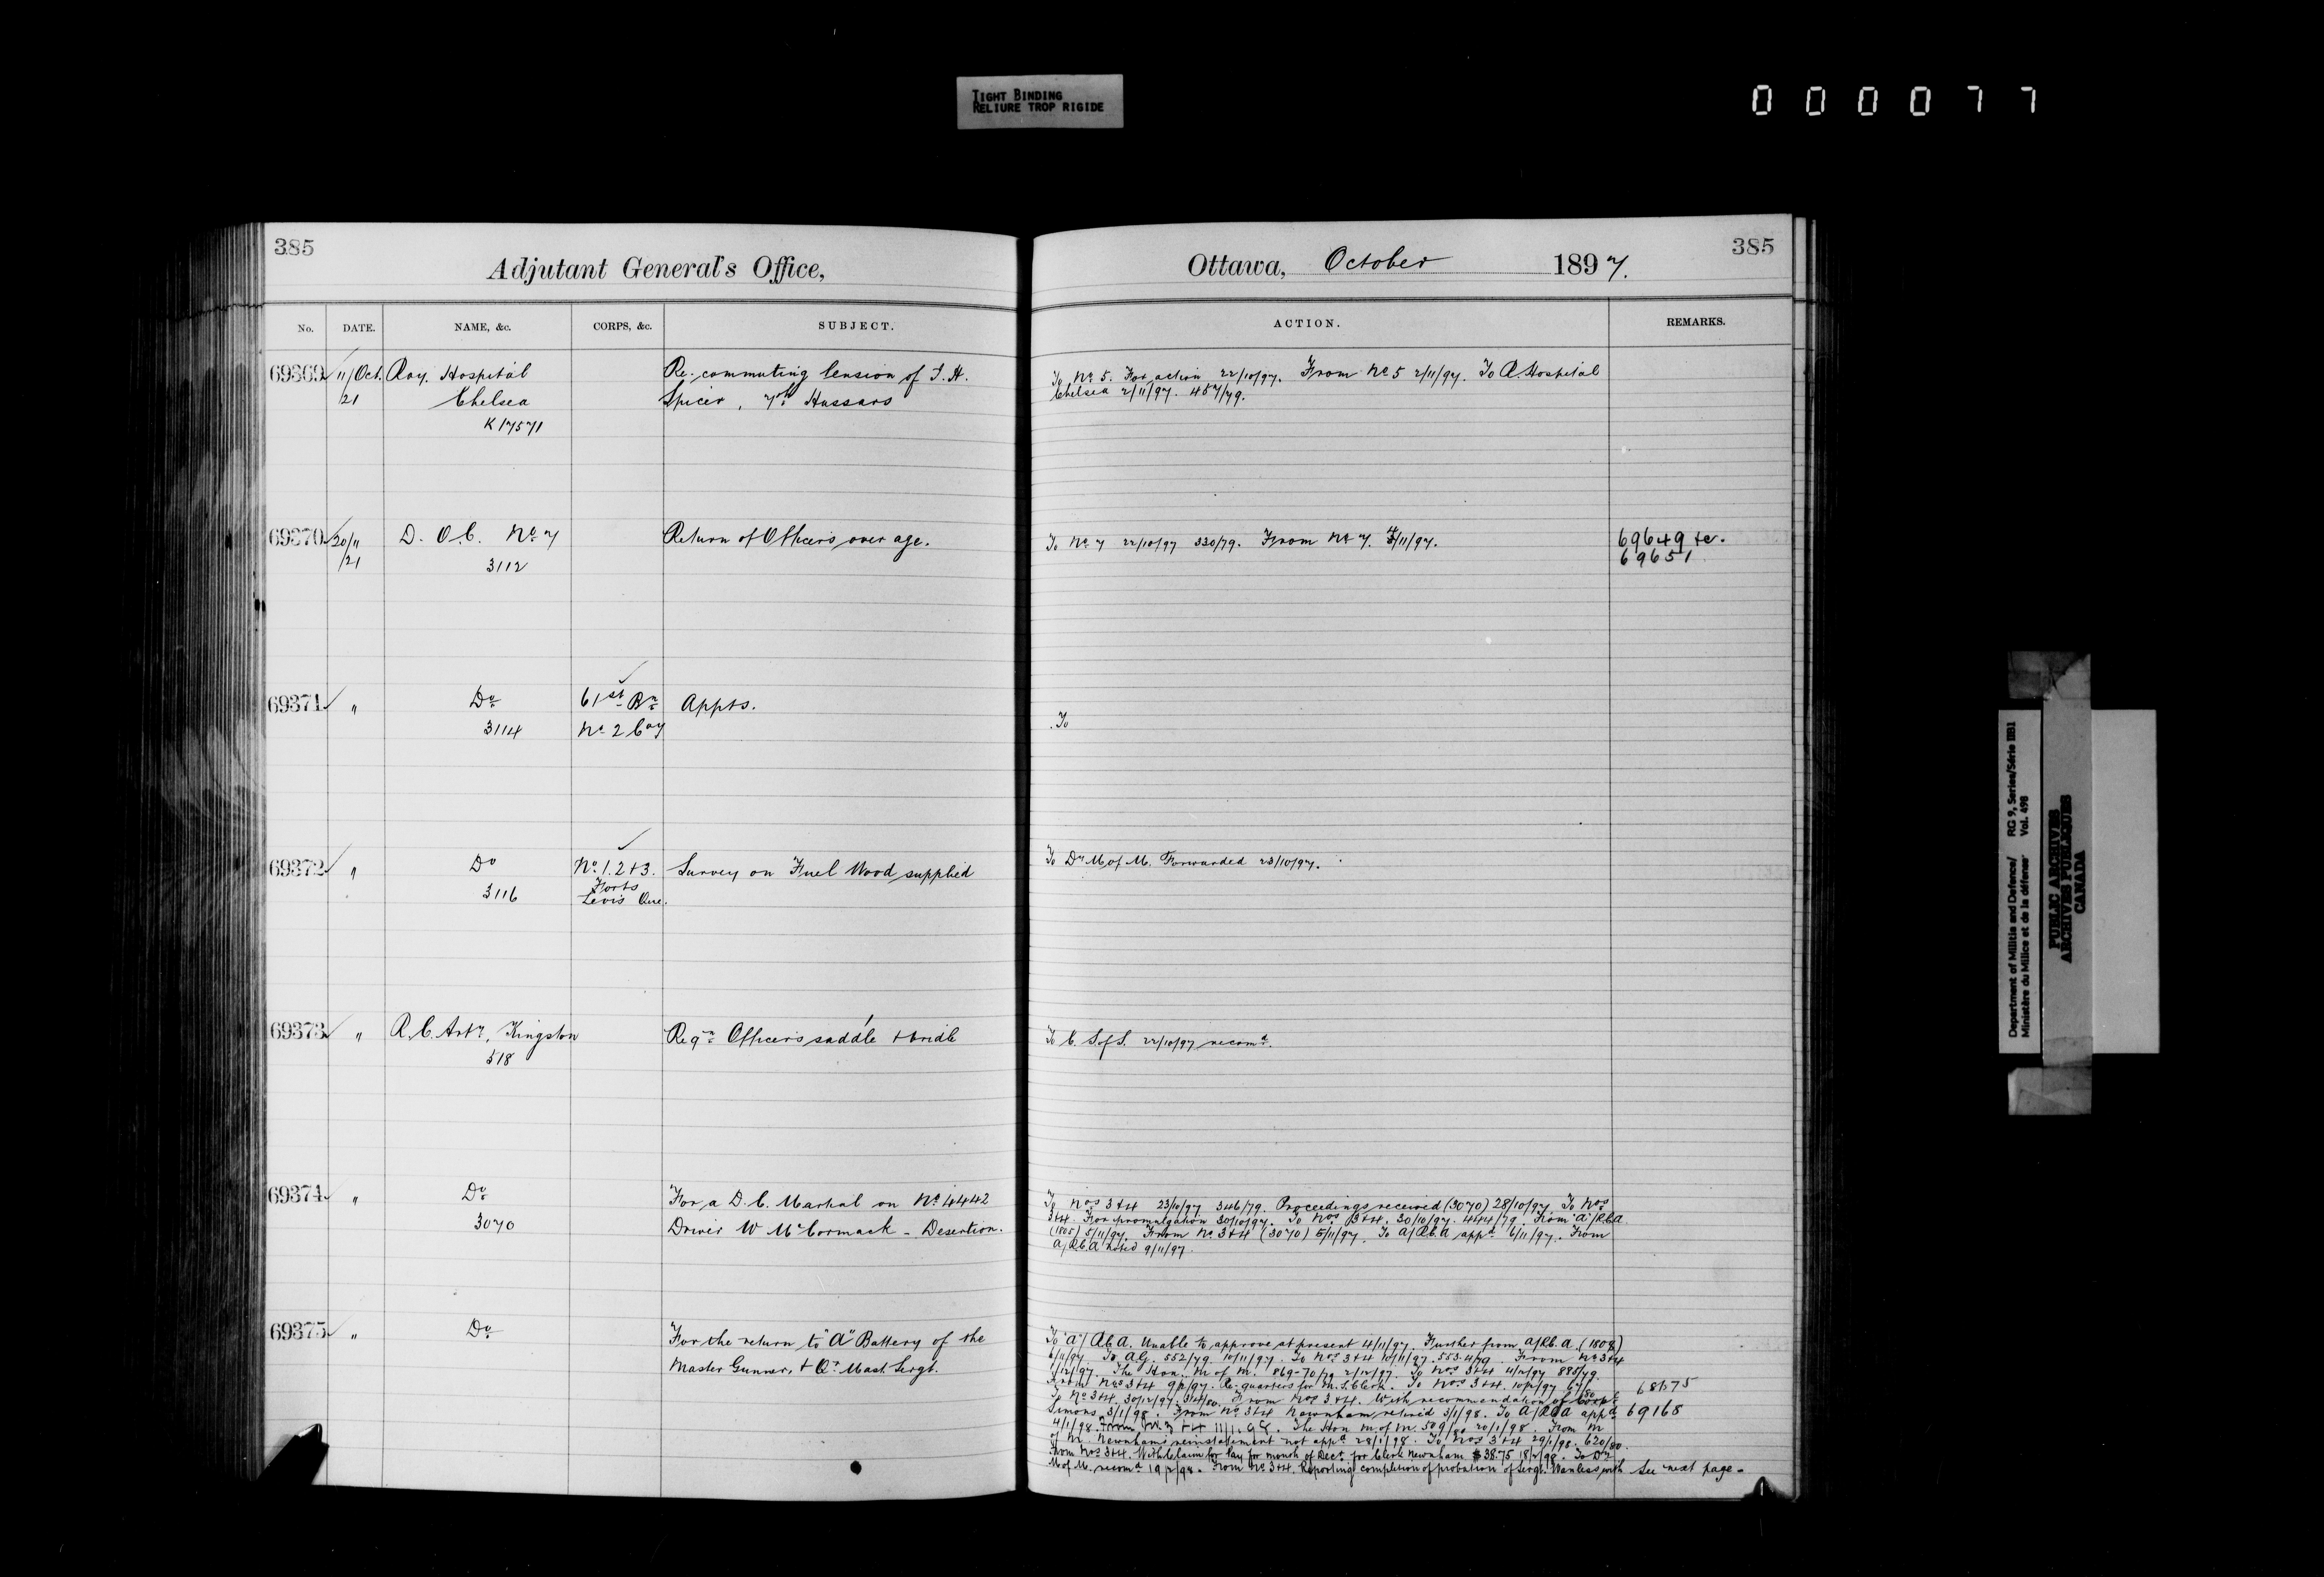 TIGHT BINDING
RELIURE TROP RIGIDE
000077
385
Adjutant General's Office,
No. DATE. NAME, &c. CORPS, &c. SUBJECT.
69369 11/Oct. Roy. Hospital Re. commuting Pension of T. H.
/21 Chelsea Spicer, 7th Hussars
K 17571
69370 20/" D. O. C. No 7 Return of Officers over age.
/21 3112
69371 " Do 61st Bn Appts.
3114 No 2 Coy
69372 " Do No 1. 2 + 3. Survey on Fuel Wood supplied
3116 Forts
Levis Que.
69373 " R. C. Arty, Kingston Reqn Officers saddle + bridle
518
69374 " Do For a D. C. Martial on No 4442
3070 Driver W McCormack - Desertion.
69375 " Do For the return to "A" Battery of the
Master Gunner, + Qr Mast. Sergt.
385
Ottawa, October 1897.
ACTION. REMARKS.
To No 5. For action 22/10/97. From No 5 2/11/97. To R. Hospital
Chelsea 2/11/97. 457/79.
To No 7 22/10/97 330/79. From No 7. 4/11/97. 69649 &c.
69651
To
To Dr M of M. Forwarded 23/10/97.
To C. S of S. 22/10/97 recomd.
To Nos 3+4 23/10/97 346/79. Proceedings received (3070) 28/10/97 To Nos
3+4. For promulgation 30/10/97. To Nos 3+4. 30/10/97. 444/79. From "A"/R.C.A
(1805) 5/11/97. From No 3+4 (3070) 5/11/97. To A/R.C.A appd 6/11/97. From
A/R.C.A noted 9/11/97.
To "A"/R.C.A. Unable to approve at present 4/11/97. Further from A/R.C.A. (1808)
6/11/97. To AG. 552/79 10/11/97. To Nos 3+4 10/11/97. 553-4/79. From No 3+4
1/12/97. The Hon. M of M. 869-70/79 2/12/97. To Nos 3+4 4/12/97 885/79.
From Nos 3+4 Re. quarters for M. S. Clerk. To Nos 3+4.
To No 3+4. 30/12/97 From Nos 3+4. With recommendation of
Simons 3/1/98. From No 3+4 Newnham retired 3/1/98. To A/RCA appd 69168
4/1/98. From No 3+4 The Hon M of M. 20/1/98. From M
of M. Newnham's reinstatement not appd 28/1/98. To Nos 3+4 29/1/98. 620/80.
From Nos 3+4. With Claim for Pay for month of Decr for Clerk Newnham $38.75 18/2/98. To Dr
M of M. recomd 19/2/98. From No 3+4. Reporting completion of probation of Sergt. Wanless with See next page -
Department of Militia and Defence/ RG 9, Series/Série IIB1
Ministère du Milice et de la défense Vol. 498
PUBLIC ARCHIVES
ARCHIVES PUBLIQUES
CANADA